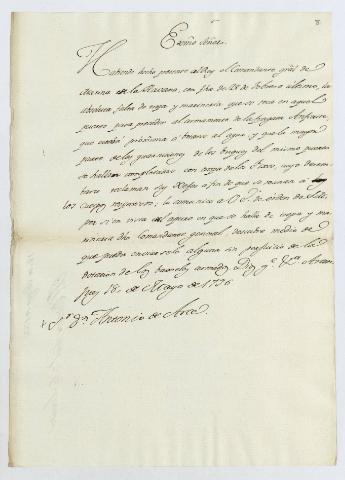 8
Exmo Señor
Habiendo hecho presente al Rey el Comandante gral de
Marina de la Havana, con fha de 28 de Febrero ultimo, la
absoluta falta de tropa y marineria que se toca en aquel
puerto para proceder al armamento de la fragata Anfitrite,
que estaba próxima á botarse al agua, y que la mayor
parte de las guarniciones de los buques del mismo puerto
se hallan completadas con tropa de la
reclaman sus Xefes á fin de que se reunan á
los cuerpos respectivos; lo comunico a V.E. de órden de S.M.
por si en vista del apuro en que se halla de tropa y ma-
rineria dho Comandante general, descubre medio de
que pueda enviarsele alguna sin perjuicio de la
dotacion de los baxeles armados. Dios gue á V.E. ms as Aran-
juez 18 de Mayo de 1796
Sr Dn Antonio de Arce